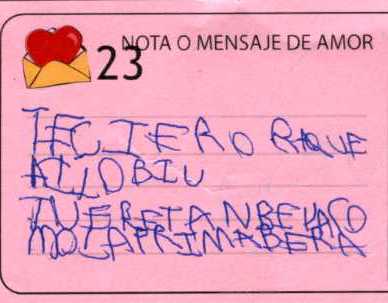 23 NOTA O MENSAJE DE AMOR
TECIERO RAQUE
ALLOBIU
TUERETANBEYACO
MOLAPRIMABERA